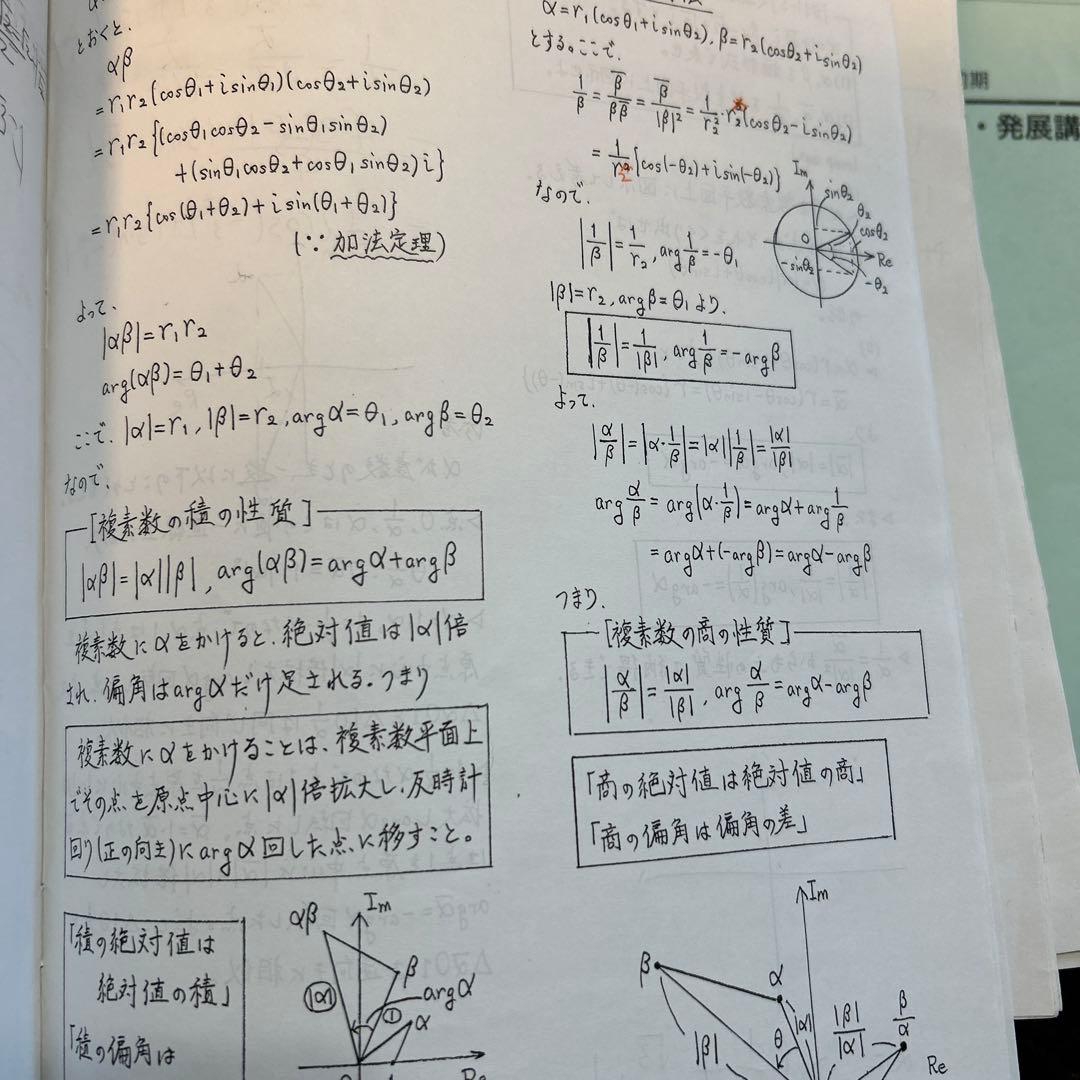 とおくと、
αβ
=r₁r₂(cosθ₁+isinθ₁)(cosθ₂+isinθ₂)
=r₁r₂{(cosθ₁cosθ₂-sinθ₁sinθ₂)
+(sinθ₁cosθ₂+cosθ₁sinθ₂)i}
=r₁r₂{cos(θ₁+θ₂)+isin(θ₁+θ₂)}
(∵加法定理)
よって、
|αβ|=r₁r₂
arg(αβ)=θ₁+θ₂
ここで、|α|=r₁,|β|=r₂,argα=θ₁,argβ=θ₂
なので、
[複素数の積の性質]
|αβ|=|α||β|, arg(αβ)=argα+argβ
複素数にαをかけると、絶対値は|α|倍
され、偏角はargαだけ足される。つまり
複素数にαをかけることは、複素数平面上
でその点を原点中心に|α|倍拡大し、反時計
回り(正の向き)にargα回した点に移すこと。
「積の絶対値は
絶対値の積」
「積の偏角は
αβ
Im
β
argα
|α|
1
α
Re
α=r₁(cosθ₁+isinθ₂), β=r₂(cosθ₂+isinθ₂)
とする。ここで、
1/β=β̅/ββ̅=β̅/|β|²=1/r₂²・r₂(cosθ₂-isinθ₂)
=1/r₂{cos(-θ₂)+isin(-θ₂)}
なので、
Im
sinθ₂
θ₂
cosθ₂
O
Re
-sinθ₂
-θ₂
|1/β|=1/r₂, arg1/β=-θ₁
|β|=r₂, argβ=θ₁より、
|1/β|=1/|β|, arg1/β=-argβ
よって、
|α/β|=|α・1/β|=|α||1/β|=|α|/|β|
argα/β=arg(α・1/β)=argα+arg1/β
=argα+(-argβ)=argα-argβ
つまり、
[複素数の商の性質]
|α/β|=|α|/|β|, argα/β=argα-argβ
「商の絶対値は絶対値の商」
「商の偏角は偏角の差」
Im
β
α
|β|
θ
|α|
|β|/|α|
β/α
Re
期
・発展講